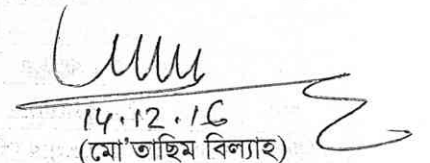 14.12.16
(মো'তাছিম বিল্যাহ)